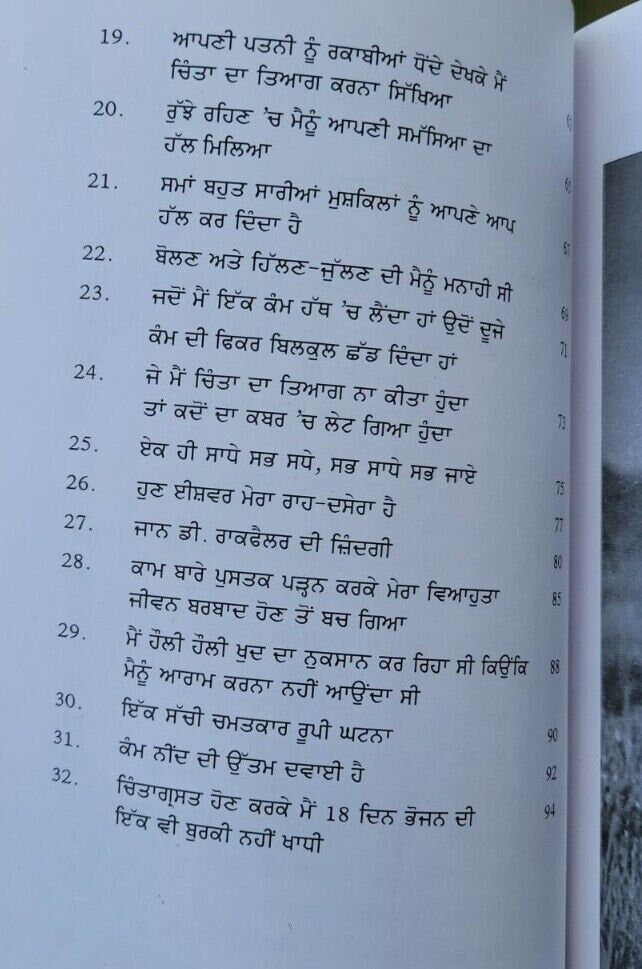 19. ਆਪਣੀ ਪਤਨੀ ਨੂੰ ਰਕਾਬੀਆਂ ਧੋਂਦੇ ਦੇਖਕੇ ਮੈਂ
ਚਿੰਤਾ ਦਾ ਤਿਆਗ ਕਰਨਾ ਸਿੱਖਿਆ
20. ਰੁੱਝੇ ਰਹਿਣ ’ਚ ਮੈਨੂੰ ਆਪਣੀ ਸਮੱਸਿਆ ਦਾ
ਹੱਲ ਮਿਲਿਆ
21. ਸਮਾਂ ਬਹੁਤ ਸਾਰੀਆਂ ਮੁਸ਼ਕਿਲਾਂ ਨੂੰ ਆਪਣੇ ਆਪ 67
ਹੱਲ ਕਰ ਦਿੰਦਾ ਹੈ
22. ਬੋਲਣ ਅਤੇ ਹਿੱਲਣ-ਜੁੱਲਣ ਦੀ ਮੈਨੂੰ ਮਨਾਹੀ ਸੀ 69
23. ਜਦੋਂ ਮੈਂ ਇੱਕ ਕੰਮ ਹੱਥ ’ਚ ਲੈਂਦਾ ਹਾਂ ਉਦੋਂ ਦੂਜੇ 71
ਕੰਮ ਦੀ ਫਿਕਰ ਬਿਲਕੁਲ ਛੱਡ ਦਿੰਦਾ ਹਾਂ
24. ਜੇ ਮੈਂ ਚਿੰਤਾ ਦਾ ਤਿਆਗ ਨਾ ਕੀਤਾ ਹੁੰਦਾ 73
ਤਾਂ ਕਦੋਂ ਦਾ ਕਬਰ ’ਚ ਲੇਟ ਗਿਆ ਹੁੰਦਾ
25. ਏਕ ਹੀ ਸਾਧੇ ਸਭ ਸਧੇ, ਸਭ ਸਾਧੇ ਸਭ ਜਾਏ 75
26. ਹੁਣ ਈਸ਼ਵਰ ਮੇਰਾ ਰਾਹ-ਦਸੇਰਾ ਹੈ 77
27. ਜਾਨ ਡੀ. ਰਾਕਫੈਲਰ ਦੀ ਜ਼ਿੰਦਗੀ 80
28. ਕਾਮ ਬਾਰੇ ਪੁਸਤਕ ਪੜ੍ਹਨ ਕਰਕੇ ਮੇਰਾ ਵਿਆਹੁਤਾ 85
ਜੀਵਨ ਬਰਬਾਦ ਹੋਣ ਤੋਂ ਬਚ ਗਿਆ
29. ਮੈਂ ਹੌਲੀ ਹੌਲੀ ਖੁਦ ਦਾ ਨੁਕਸਾਨ ਕਰ ਰਿਹਾ ਸੀ ਕਿਉਂਕਿ 88
ਮੈਨੂੰ ਆਰਾਮ ਕਰਨਾ ਨਹੀਂ ਆਉਂਦਾ ਸੀ
30. ਇੱਕ ਸੱਚੀ ਚਮਤਕਾਰ ਰੂਪੀ ਘਟਨਾ 90
31. ਕੰਮ ਨੀਂਦ ਦੀ ਉੱਤਮ ਦਵਾਈ ਹੈ 92
32. ਚਿੰਤਾਗ੍ਰਸਤ ਹੋਣ ਕਰਕੇ ਮੈਂ 18 ਦਿਨ ਭੋਜਨ ਦੀ 94
ਇੱਕ ਵੀ ਬੁਰਕੀ ਨਹੀਂ ਖਾਧੀ